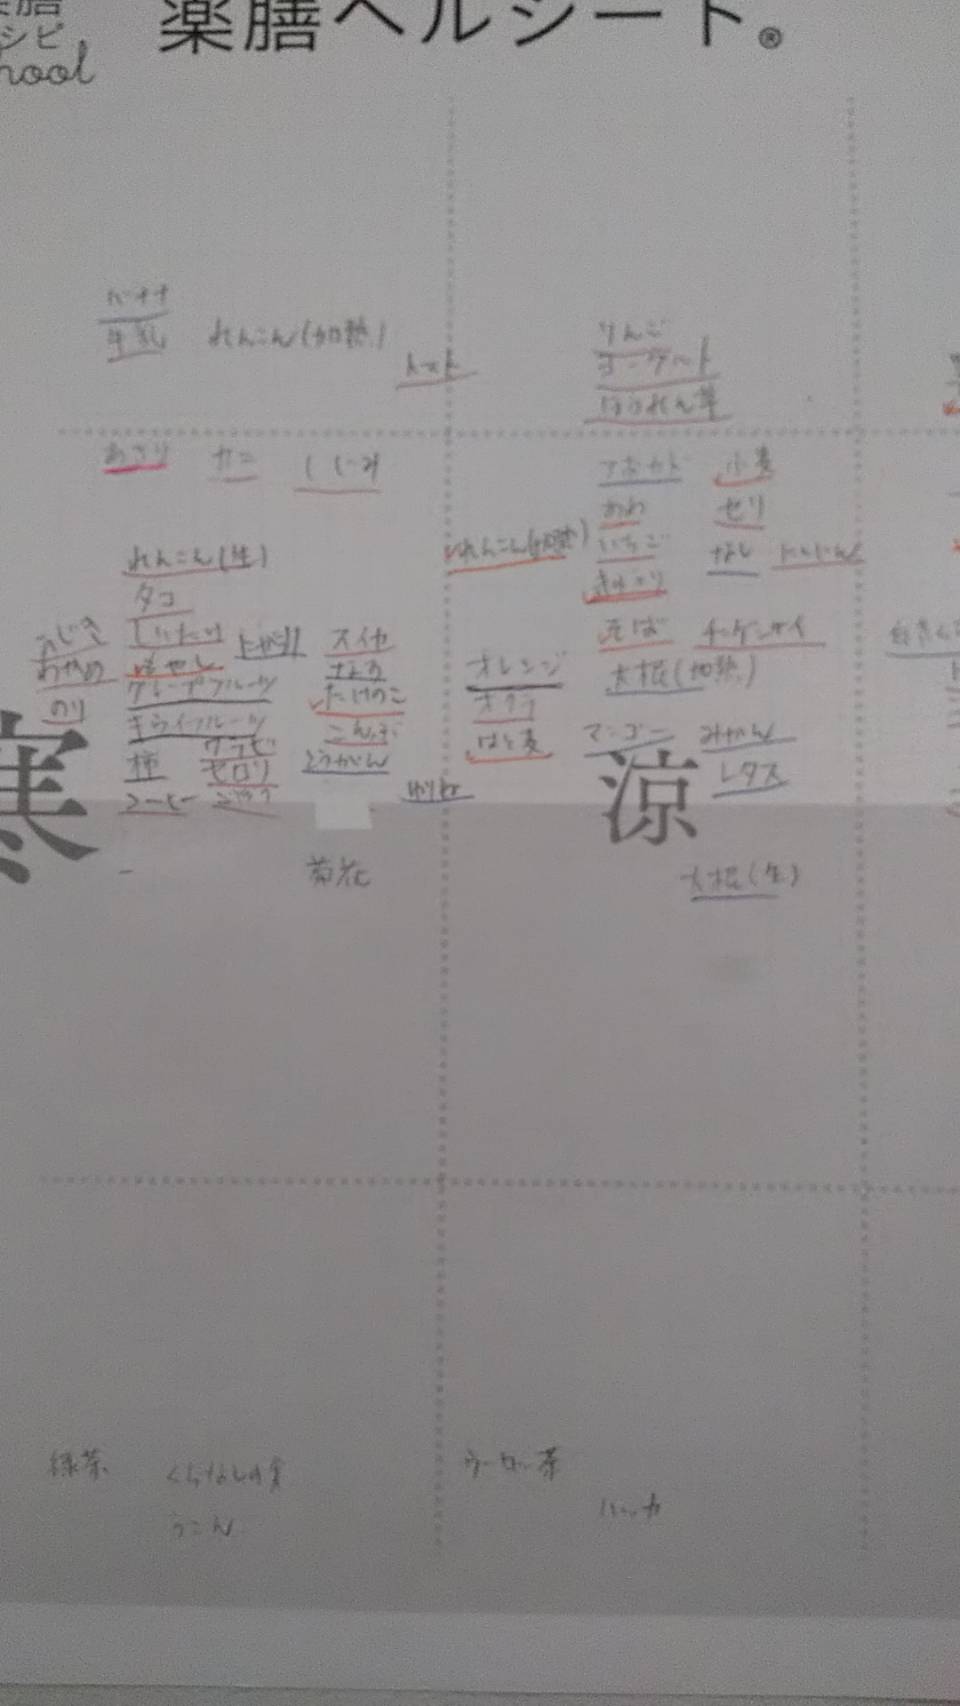 薬膳ヘルシート®
シピ
hool
バナナ
牛乳
れんこん(加熱)
トマト
りんご
ヨーグルト
ほうれん草
あさり
カニ
しじみ
れんこん(生)
タコ
ひじき
わかめ
のり
もやし
グレープフルーツ
キウイフルーツ
柿
ワラビ
セロリ
コーヒー
ゴボウ
スイカ
なす
たけのこ
こんぶ
とうがん
菊花
寒
れんこん(加熱)
アボカド
小麦
あわ
セリ
いちご
なし
にんじん
きゅうり
そば
チンゲンサイ
オレンジ
大根(加熱)
オクラ
はと麦
マンゴー
みかん
レタス
涼
大根(生)
緑茶
くちなしの実
うこん
ウーロン茶
ハッカ